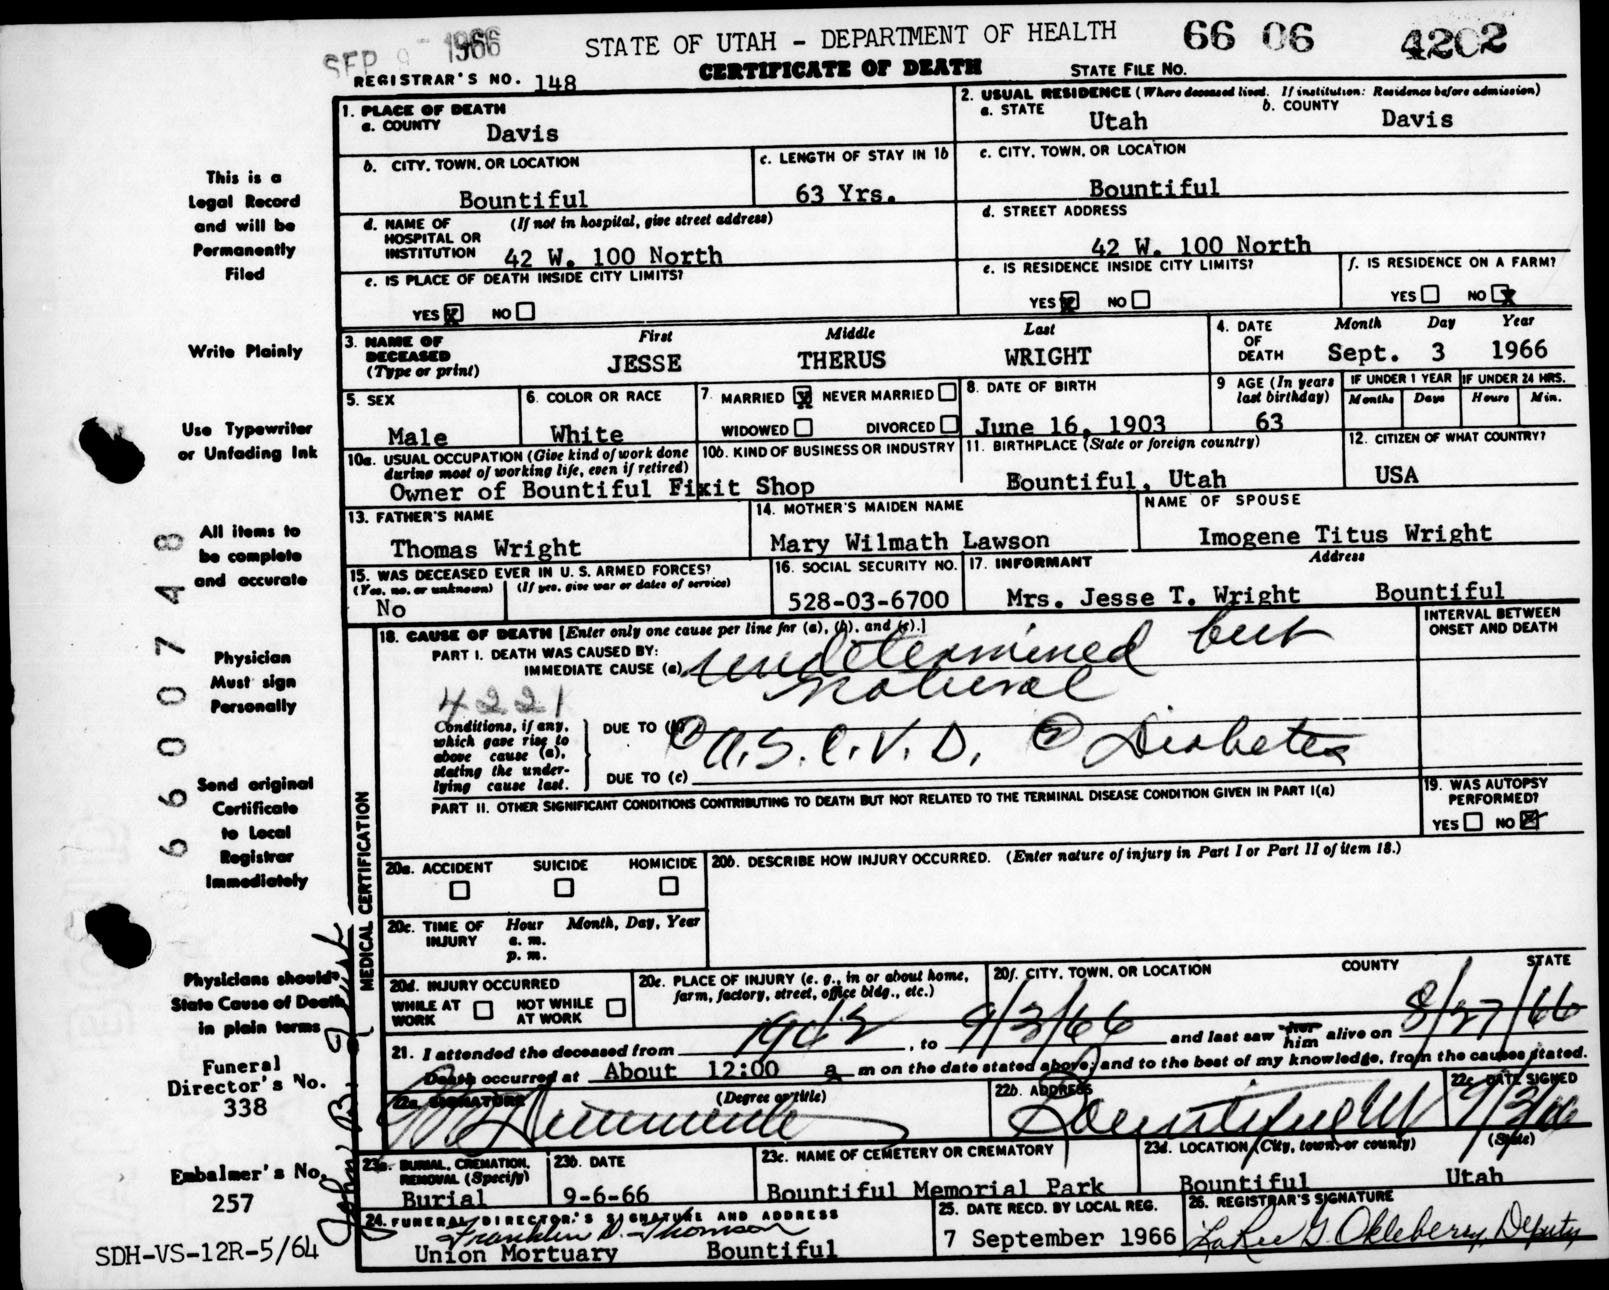 SEP 9 - 1966
STATE OF UTAH - DEPARTMENT OF HEALTH 66 06 4202
REGISTRAR'S NO. 148 CERTIFICATE OF DEATH STATE FILE NO.
1. PLACE OF DEATH
a. COUNTY Davis
2. USUAL RESIDENCE (Where deceased lived. If institution: Residence before admission)
a. STATE Utah b. COUNTY Davis
b. CITY, TOWN, OR LOCATION Bountiful
c. LENGTH OF STAY IN 1b 63 Yrs.
c. CITY, TOWN, OR LOCATION Bountiful
d. NAME OF HOSPITAL OR INSTITUTION (If not in hospital, give street address)
42 W. 100 North
d. STREET ADDRESS
42 W. 100 North
e. IS PLACE OF DEATH INSIDE CITY LIMITS?
YES X NO
e. IS RESIDENCE INSIDE CITY LIMITS?
YES X NO
f. IS RESIDENCE ON A FARM?
YES NO X
3. NAME OF DECEASED (Type or print)
First Middle Last
JESSE THERUS WRIGHT
4. DATE OF DEATH Month Day Year
Sept. 3 1966
5. SEX Male
6. COLOR OR RACE White
7. MARRIED X NEVER MARRIED
WIDOWED DIVORCED
8. DATE OF BIRTH June 16, 1903
9 AGE (In years last birthday) 63
IF UNDER 1 YEAR Months Days
IF UNDER 24 HRS. Hours Min.
10a. USUAL OCCUPATION (Give kind of work done during most of working life, even if retired)
10b. KIND OF BUSINESS OR INDUSTRY
Owner of Bountiful Fixit Shop
11. BIRTHPLACE (State or foreign country)
Bountiful, Utah
12. CITIZEN OF WHAT COUNTRY?
USA
13. FATHER'S NAME
Thomas Wright
14. MOTHER'S MAIDEN NAME
Mary Wilmath Lawson
NAME OF SPOUSE
Imogene Titus Wright
15. WAS DECEASED EVER IN U. S. ARMED FORCES?
(Yes, no, or unknown) (If yes, give war or dates of service)
No
16. SOCIAL SECURITY NO.
528-03-6700
17. INFORMANT Address
Mrs. Jesse T. Wright Bountiful
MEDICAL CERTIFICATION
18. CAUSE OF DEATH [Enter only one cause per line for (a), (b), and (c).]
INTERVAL BETWEEN ONSET AND DEATH
PART I. DEATH WAS CAUSED BY:
IMMEDIATE CAUSE (a) undetermined but
natural
4221
Conditions, if any, which gave rise to above cause (a), stating the underlying cause last.
DUE TO (b) ① A.S.C.V.D. ② Diabetes
DUE TO (c)
PART II. OTHER SIGNIFICANT CONDITIONS CONTRIBUTING TO DEATH BUT NOT RELATED TO THE TERMINAL DISEASE CONDITION GIVEN IN PART I(a)
19. WAS AUTOPSY PERFORMED?
YES NO X
20a. ACCIDENT SUICIDE HOMICIDE
20b. DESCRIBE HOW INJURY OCCURRED. (Enter nature of injury in Part I or Part II of item 18.)
20c. TIME OF INJURY Hour Month, Day, Year
a. m.
p. m.
20d. INJURY OCCURRED
WHILE AT WORK NOT WHILE AT WORK
20e. PLACE OF INJURY (e. g., in or about home, farm, factory, street, office bldg., etc.)
20f. CITY, TOWN, OR LOCATION COUNTY STATE
21. I attended the deceased from , to 9/3/66 and last saw her him alive on 8/27/66
Death occurred at About 12:00 a m on the date stated above; and to the best of my knowledge, from the causes stated.
22a. SIGNATURE (Degree or title)
22b. ADDRESS Bountiful
22c. DATE SIGNED 9/3/66
23a. BURIAL, CREMATION, REMOVAL (Specify)
Burial
23b. DATE
9-6-66
23c. NAME OF CEMETERY OR CREMATORY
Bountiful Memorial Park
23d. LOCATION (City, town, or county) (State)
Bountiful Utah
24. FUNERAL DIRECTOR'S SIGNATURE AND ADDRESS
Franklin D. Thomson
Union Mortuary Bountiful
25. DATE RECD. BY LOCAL REG.
7 September 1966
26. REGISTRAR'S SIGNATURE
Deputy
This is a
Legal Record
and will be
Permanently
Filed
Write Plainly
Use Typewriter
or Unfading Ink
All items to
be complete
and accurate
Physician
Must sign
Personally
Send original
Certificate
to Local
Registrar
Immediately
Physicians should
State Cause of Death
in plain terms
Funeral
Director's No.
338
Embalmer's No.
257
SDH-VS-12R-5/64
66007 48